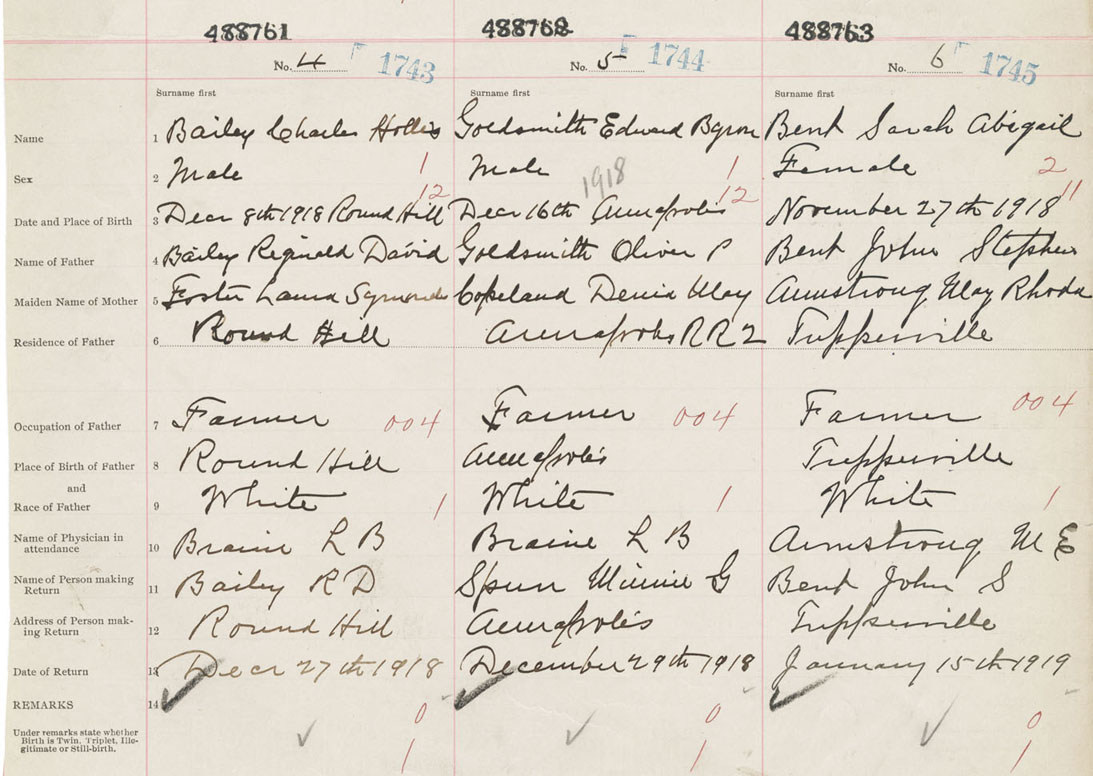 488761 488762 488763
No. 4 F 1743 No. 5 F 1744 No. 6 F 1745
Surname first Surname first Surname first
Name 1 Bailey Charles Hollis Goldsmith Edward Byron Bent Sarah Abigail
Sex 2 Male 1 Male 1918 1 Female 2
12 12 11
Date and Place of Birth 3 Decr 8th 1918 Round Hill Decr 16th Annapolis November 27th 1918
Name of Father 4 Bailey Reginald David Goldsmith Oliver P Bent John Stephen
Maiden Name of Mother 5 Foster Laura Symonds Copeland May Armstrong May Rhoda
Residence of Father 6 Round Hill Annapolis RR2 Tupperville
Occupation of Father 7 Farmer 004 Farmer 004 Farmer 004
Place of Birth of Father 8 Round Hill Annapolis Tupperville
and
Race of Father 9 White 1 White 1 White 1
Name of Physician in
attendance 10 Braine L B Braine L B Armstrong M E
Name of Person making
Return 11 Bailey R D Minnie G Bent John S
Address of Person mak-
ing Return 12 Round Hill Annapolis Tupperville
Date of Return 13 Decr 27th 1918 December 29th 1918 January 15th 1919
REMARKS 14 0 0 0
Under remarks state whether
Birth is Twin, Triplet, Ille-
gitimate or Still-birth. 1 1 1